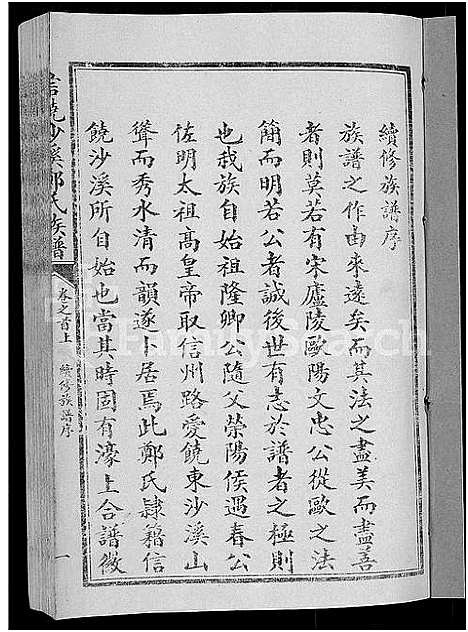 續修族譜序
族譜之作由來遠矣而其法之盡美而盡善
者則莫若有宋廬陵歐陽文忠公從歐之法
簡而明若公者誠後世有志於譜者之極則
也我族自始祖隆卿公隨父滎陽侯遇春公
佐明太祖高皇帝取信州路愛饒東沙溪山
聳而秀水清而韻遂卜居焉此鄭氏隸籍信
饒沙溪所自始也當其時固有濠上合譜微
饒沙溪鄭氏族譜
卷之首上
續修族譜序
一
FamilySearch